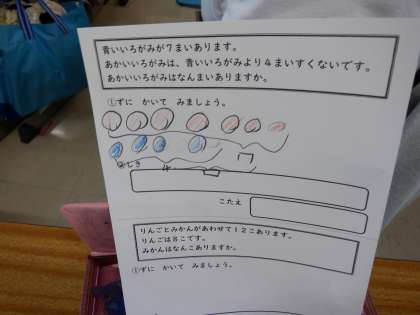 青いいろがみが7まいあります。
あかいいろがみは、青いいろがみより4まいすくないです。
あかいいろがみはなんまいありますか。
①ずに かいて みましょう。
②しき
4
こたえ
りんごとみかんがあわせて12こあります。
りんごは8こです。
みかんはなんこありますか。
①ずに かいて みましょう。